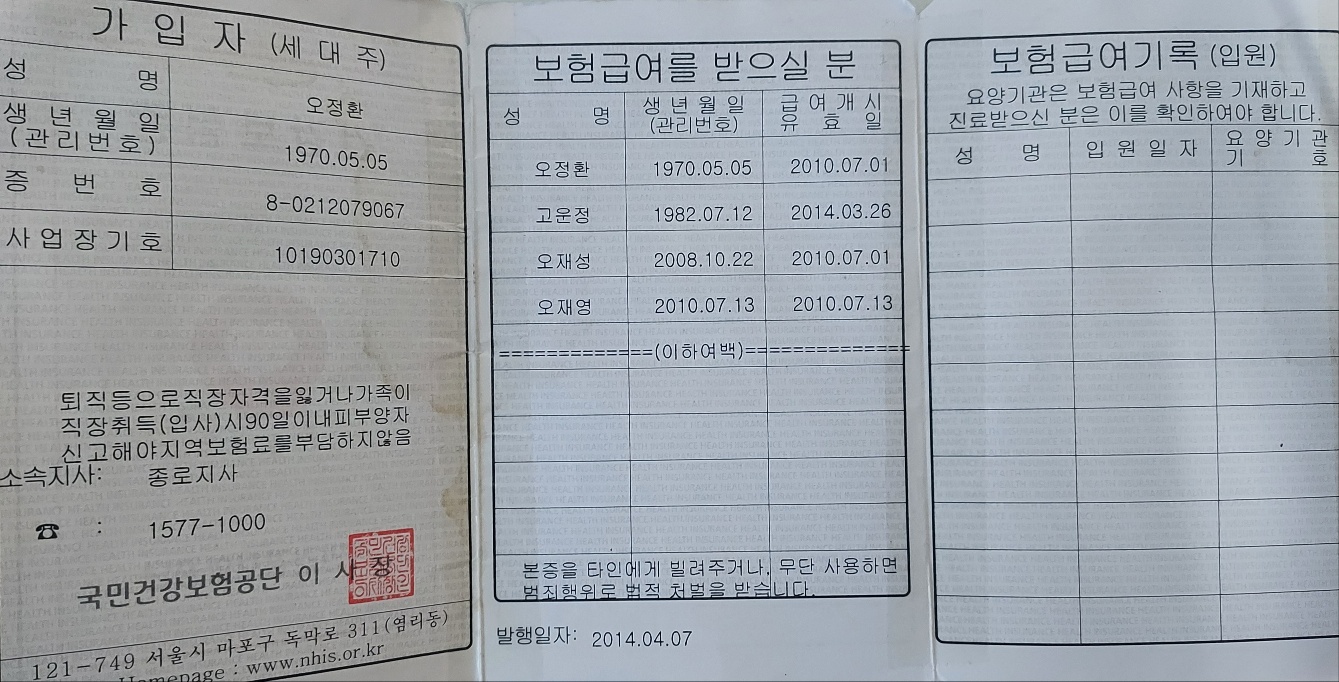 가 입 자 (세 대 주)
성 명 오정환
생 년 월 일
(관리번호) 1970.05.05
증 번 호 8-0212079067
사업장기호 10190301710
퇴직등으로직장자격을잃거나가족이
직장취득(입사)시90일이내피부양자
신고해야지역보험료를부담하지않음
소속지사: 종로지사
☎ : 1577-1000
국민건강보험공단 이 사 장
121-749 서울시 마포구 독막로 311(염리동)
Homepage : www.nhis.or.kr
보험급여를 받으실 분
성 명 생 년 월 일 급 여 개 시
(관리번호) 유 효 일
오정환 1970.05.05 2010.07.01
고운정 1982.07.12 2014.03.26
오재성 2008.10.22 2010.07.01
오재영 2010.07.13 2010.07.13
=============(이하여백)=============
본증을 타인에게 빌려주거나, 무단 사용하면
범죄행위로 법적 처벌을 받습니다.
발행일자: 2014.04.07
보험급여기록 (입원)
요양기관은 보험급여 사항을 기재하고
진료받으신 분은 이를 확인하여야 합니다.
성 명 입 원 일 자 요 양 기 관
기 호